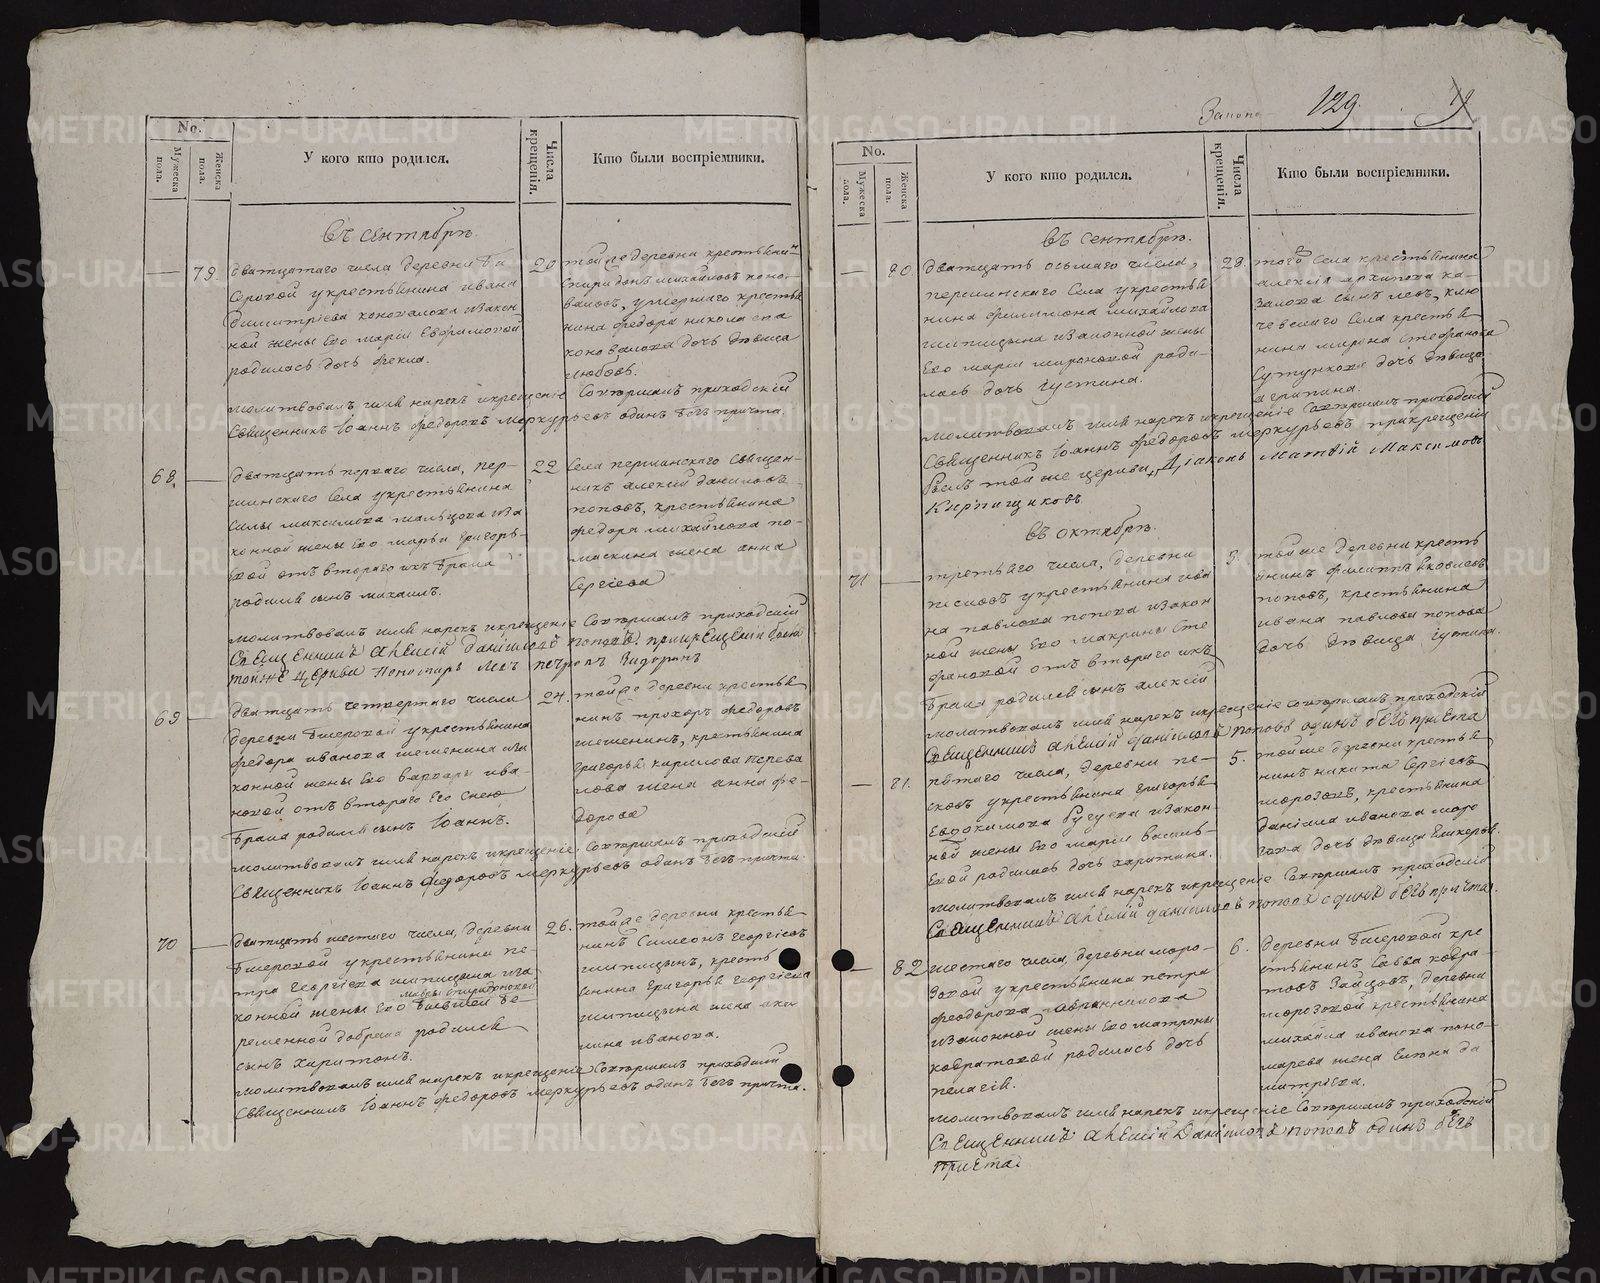 No.
Мужеска пола.
Женска пола.
У кого кто родился.
Числа крещенія.
Кто были воспріемники.
въ сентябрѣ.
79. дватцатаго числа деревни
у крестьянина ивана
димитріева коновалова
ной жены его маріи
родилась дочь фекла.
20
деревни крестьянинъ
михайловъ коно-
валовъ, умершаго крестья
нина федора
коновалова дочь дѣвица
любовь.
молитвовалъ имя нарекъ и крещеніе совершалъ приходскій
священникъ Іоаннъ федоровъ меркурьевъ одинъ безъ причта.
68. дватцать перваго числа, пер-
шинскаго села у крестьянина
силы максимова мальцова иза
конной жены его марьи григорь-
вой отъ втораго ихъ брака
родился сынъ михаилъ.
22
села першинскаго священ-
никъ алексій даниловъ
поповъ, крестьянина
федора михайлова по-
жена анна
сергіева
молитвовалъ имя нарекъ и крещеніе совершалъ приходскій
священникъ алексій даніиловъ поповъ при крещеніи былъ
тойже церкви пономарь петровъ
69 дватцать четвертаго числа
деревни у крестьянина
федора иванова иза
конной жены его варвары ива-
новой отъ втораго его снею
брака родился сынъ Іоаннъ.
24.
деревни крестья
нинъ прохоръ федоровъ
крестьянина
григорья кирилова перева
лова жена анна фе-
дорова
молитвовалъ имя нарекъ и крещеніе совершалъ приходскій
священникъ Іоаннъ федоровъ меркурьевъ одинъ безъ причта.
70 дватцать шестаго числа, деревни
у крестьянина пе-
тра георгіева шипицына иза
конной жены его
родился
сынъ харитонъ.
26.
деревни крестья
нинъ симеонъ георгіевъ
шипицынъ, кресть
янина григорья георгіева
шипицына жена аки
лина иванова.
молитвовалъ имя нарекъ и крещеніе совершалъ приходскій
священникъ Іоаннъ федоровъ меркурьевъ одинъ безъ причта.
129.
No.
Мужеска пола.
Женска пола.
У кого кто родился.
Числа крещенія.
Кто были воспріемники.
въ сентябрѣ.
80 двадцать осьмаго числа,
першинскаго села у крестья
нина филимона михайлова
шипицына изаконной жены
его маріи мироновой роди-
лась дочь густина.
29.
того села крестьянина
алексія архипова ка-
закова сынъ левъ, клю
чевскаго села крестья
нина мирона стефанова
сутункова дочь дѣвица
агрипина.
молитвовалъ имя нарекъ и крещеніе совершалъ приходскій
священникъ Іоаннъ федоровъ меркурьевъ при крещеніи
былъ той же церкви діаконъ матвій максимовъ
кирпищиковъ
въ октябрѣ.
71 третьяго числа, деревни
песковъ у крестьянина ива
на павлова попова изакон
ной жены его макрины сте
фановой отъ втораго ихъ
брака родился сынъ алексій
3.
тойже деревни кресть
янинъ филиппъ яковлевъ
поповъ, крестьянина
ивана павлова попова
дочь дѣвица густина.
молитвовалъ имя нарекъ и крещеніе совершалъ приходскій
священникъ алексій даніиловъ поповъ одинъ безъ причта
81. пятаго числа, деревни пе-
сковъ у крестьянина григорья
евдокимова бугуева изакон-
ной жены его маріи василь-
евой родилась дочь харитина.
5.
тойже деревни крестья
нинъ никита сергіевъ
морозовъ, крестьянина
даніила иванова моро
зова дочь дѣвица
молитвовалъ имя нарекъ и крещеніе совершалъ приходскій
священникъ алексій даниловъ поповъ одинъ безъ причта.
82 шестаго числа, деревни моро-
зовой у крестьянина петра
феодорова
изаконной жены его матроны
кодратовой родилась дочь
пелагія.
6.
деревни кре
стьянинъ савва кодра-
товъ зайцовъ, деревни
морозовой крестьянина
михаила иванова поно-
марева жена елена ди
митріева.
молитвовалъ имя нарекъ и крещеніе совершалъ приходскій
священникъ алексій даніиловъ поповъ одинъ безъ
причта.
METRIKI.GASO-URAL.RU